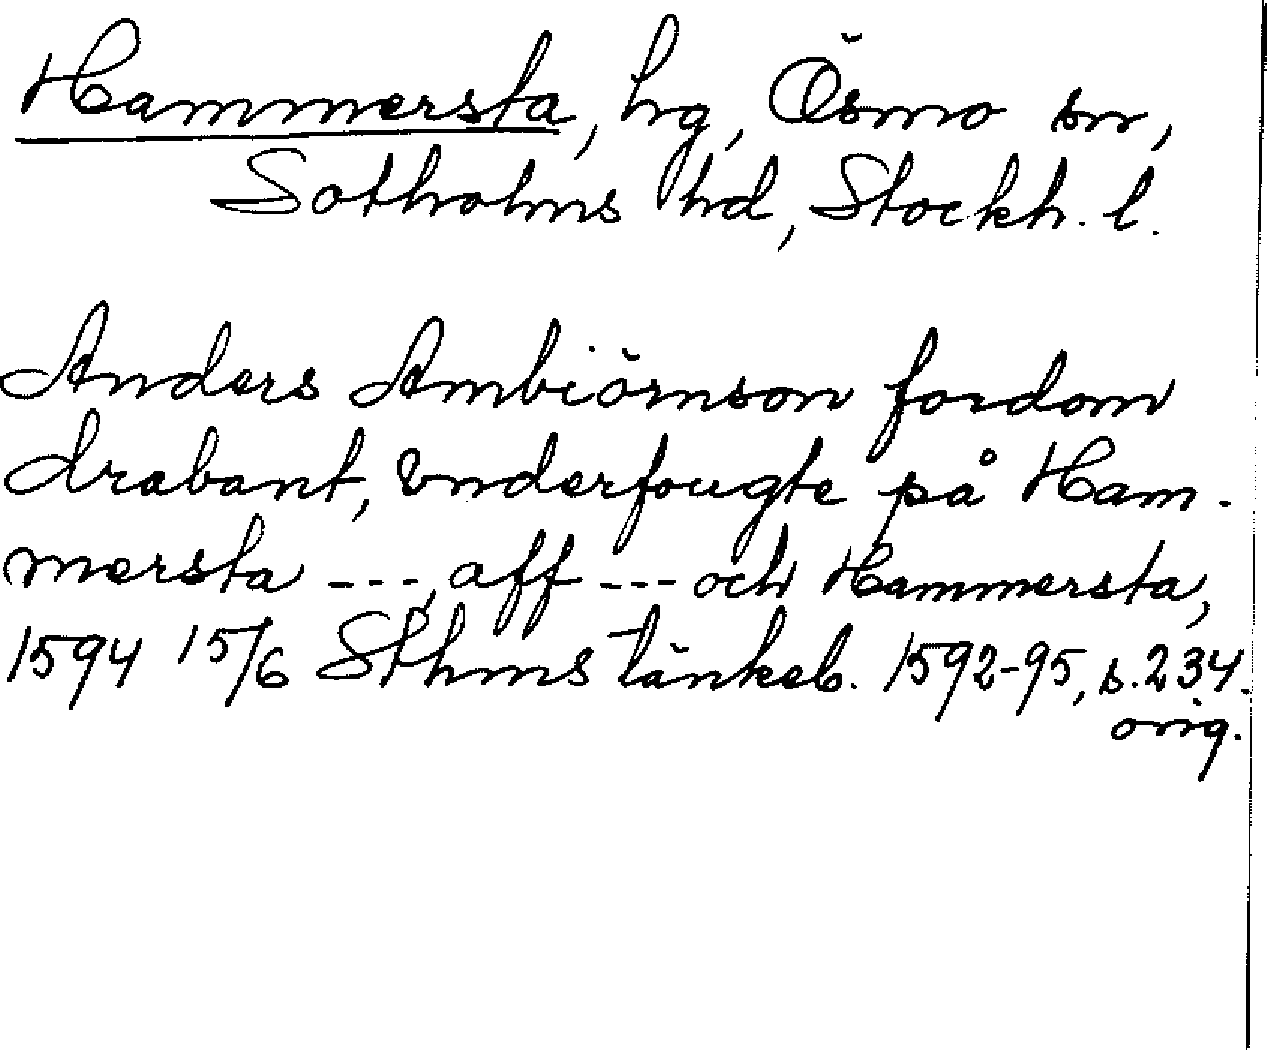 Hammersta, hg, Ösmo sn,
Sotholms hd, Stockh. l.
Anders Ambiörnson fordom
drabant, vnderfougte på Ham-
mersta ---, aff --- och Hammersta,
1594 15/6 Sthms tänkeb. 1592-95, s. 234.
orig.